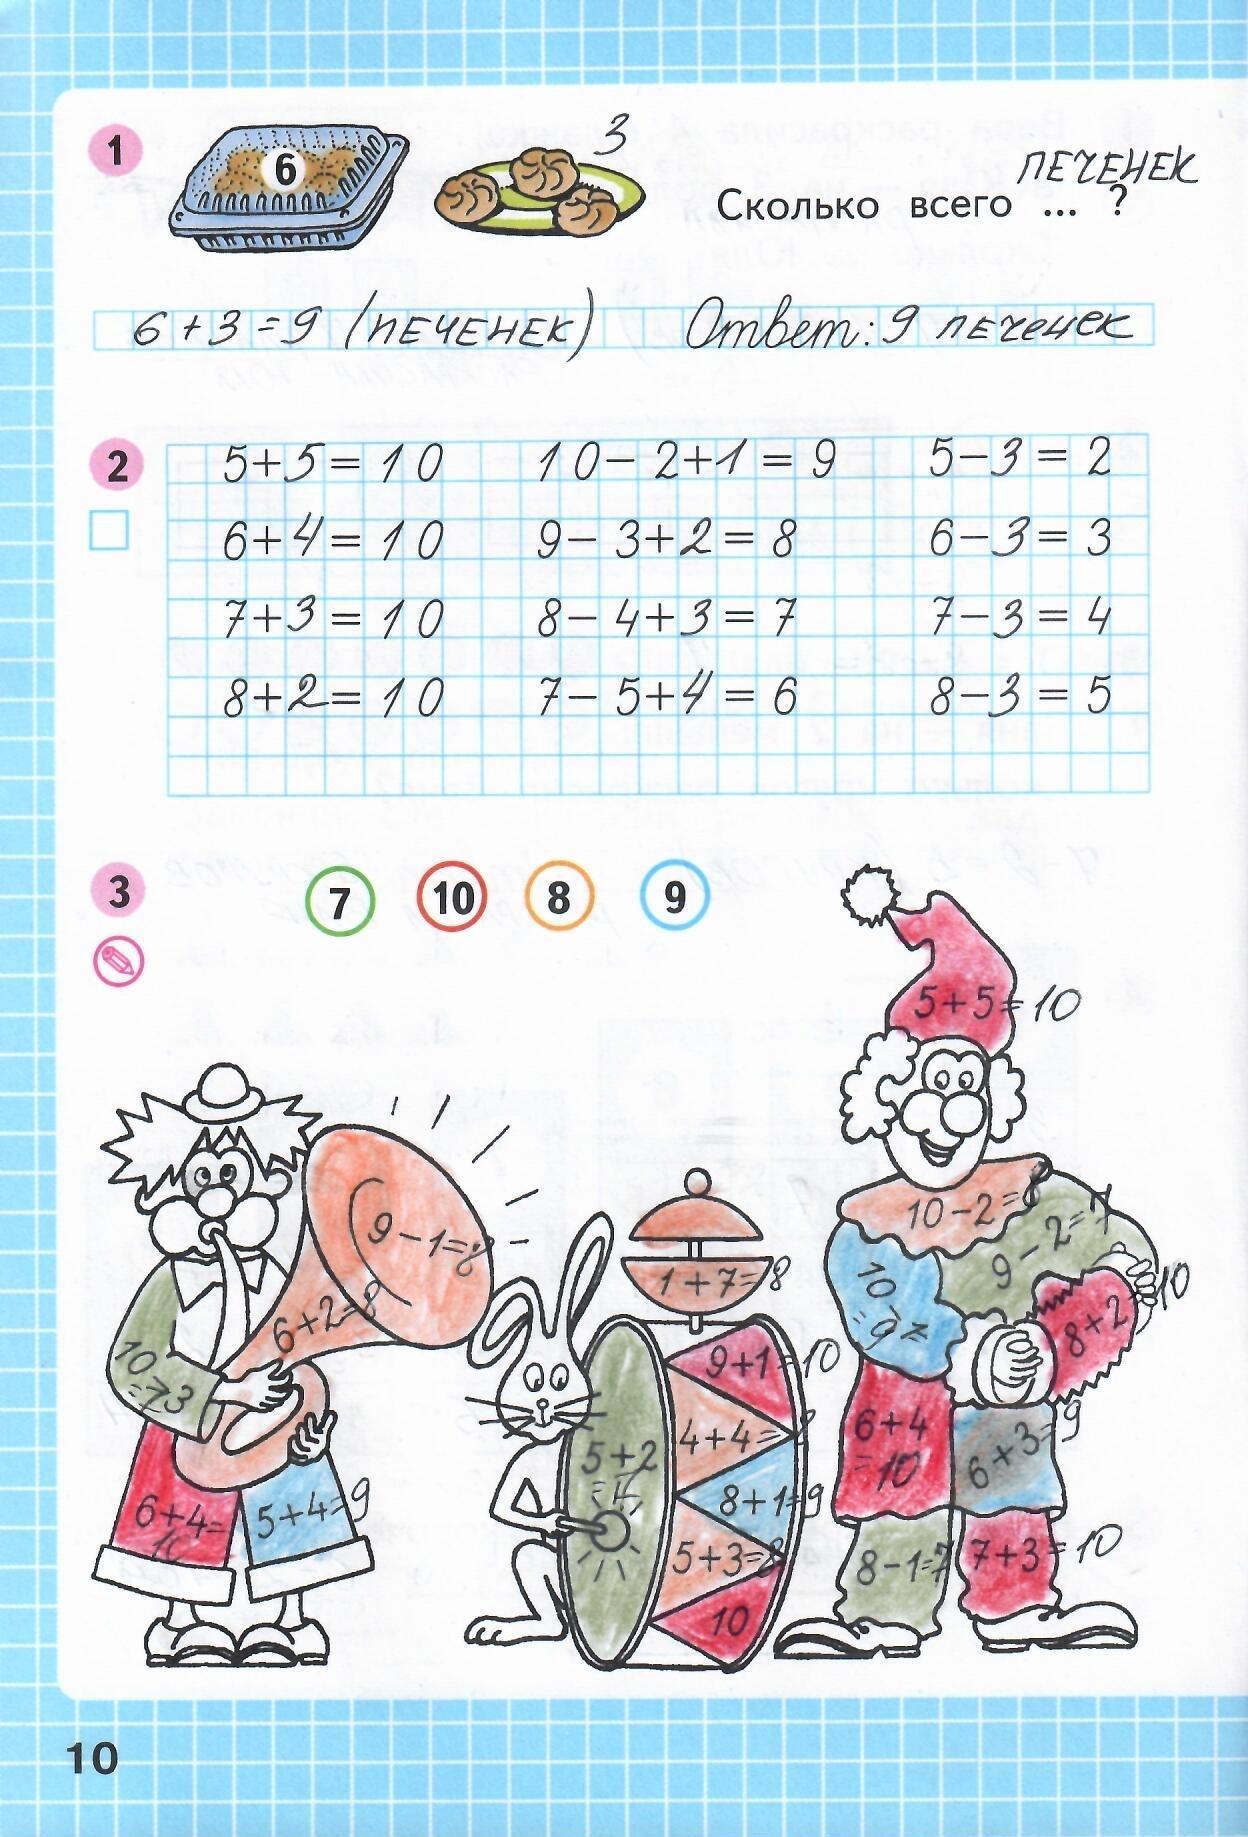 1
6
3
печенек
Сколько всего ... ?
6+3=9 (печенек) Ответ: 9 печенек
2
5+5=10 10-2+1=9 5-3=2
6+4=10 9-3+2=8 6-3=3
7+3=10 8-4+3=7 7-3=4
8+2=10 7-5+4=6 8-3=5
3
7 10 8 9
5+5=10
9-1=8
6+2=8
6+4=
10
5+4=9
1+7=8
5+2
9+1=10
4+4=
8+1=9
5+3=8
10
10-2=8
9-2=7
8+2
10
6+4
=10
6+3=9
8-1=7
7+3=10
10